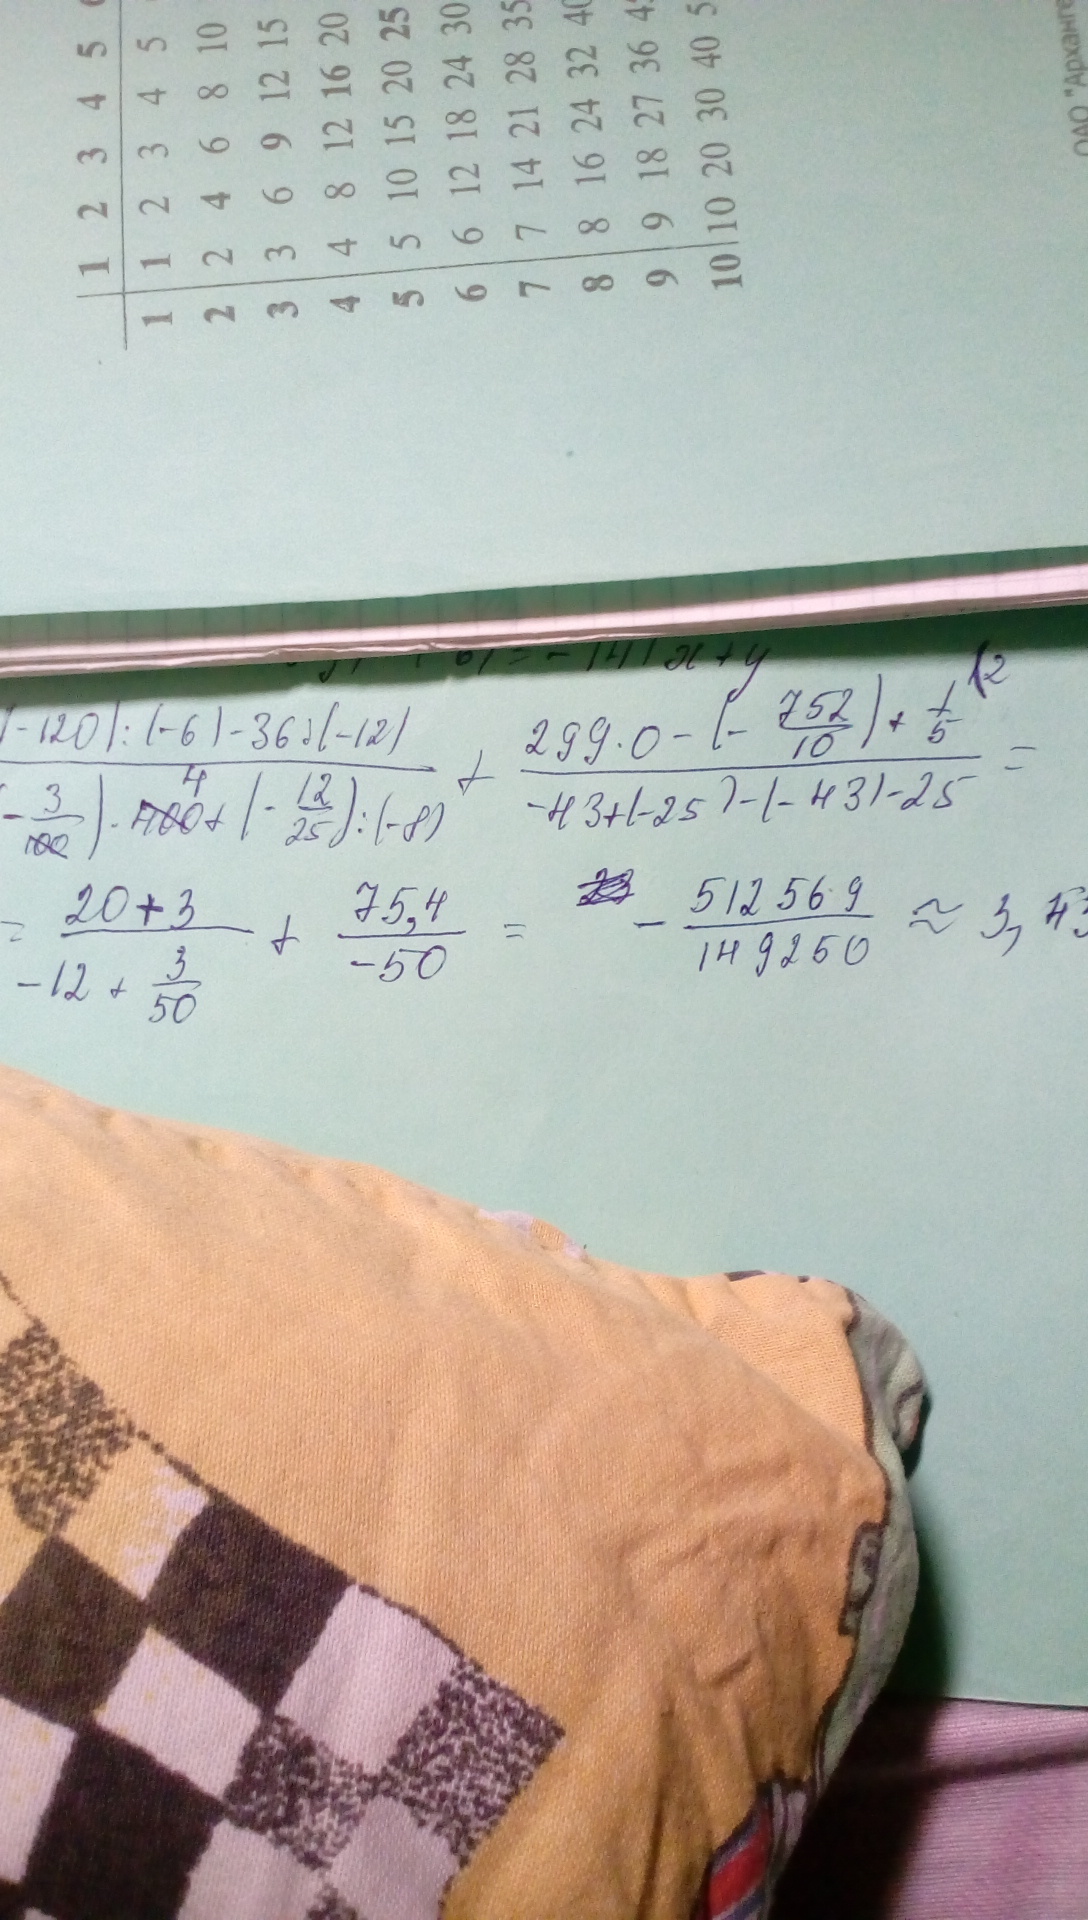 1 2 3 4 5
1 1 2 3 4 5
2 2 4 6 8 10
3 3 6 9 12 15
4 4 8 12 16 20
5 5 10 15 20 25
6 6 12 18 24 30
7 7 14 21 28 35
8 8 16 24 32 40
9 9 18 27 36 4
10 10 20 30 40 5
ОАО "Арханге
= -14 | x+y
(-120):(-6)-36:(-12) / (-3/100)·400+(-12/25):(-8) + 299·0-(-752/10)+1/5 (2 / -43+(-25)-(-43)-25 =
= 20+3 / -12+3/50 + 75,4 / -50 = -512569/149250 ≈ 3,43